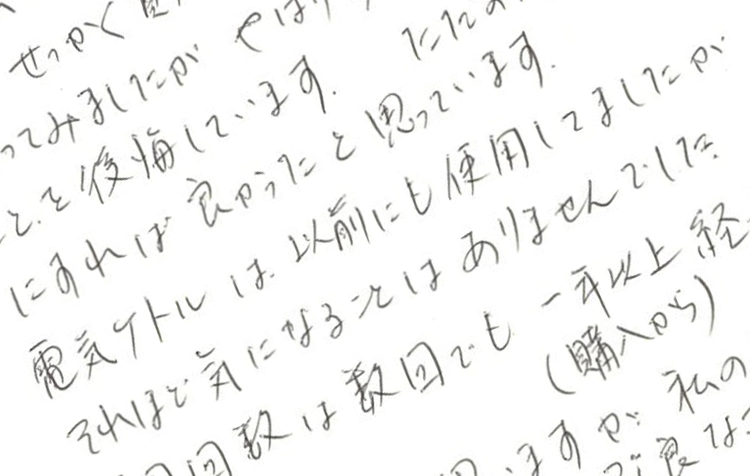 せっかく
ってみましたが やはり
ことを後悔しています。 ただの
にすれば良かったと思っています。
電気ケトルは以前にも使用してましたが
それほど気になることはありませんでした。
回数は数回でも 一年以上 経
(購入から)
ますが 私の